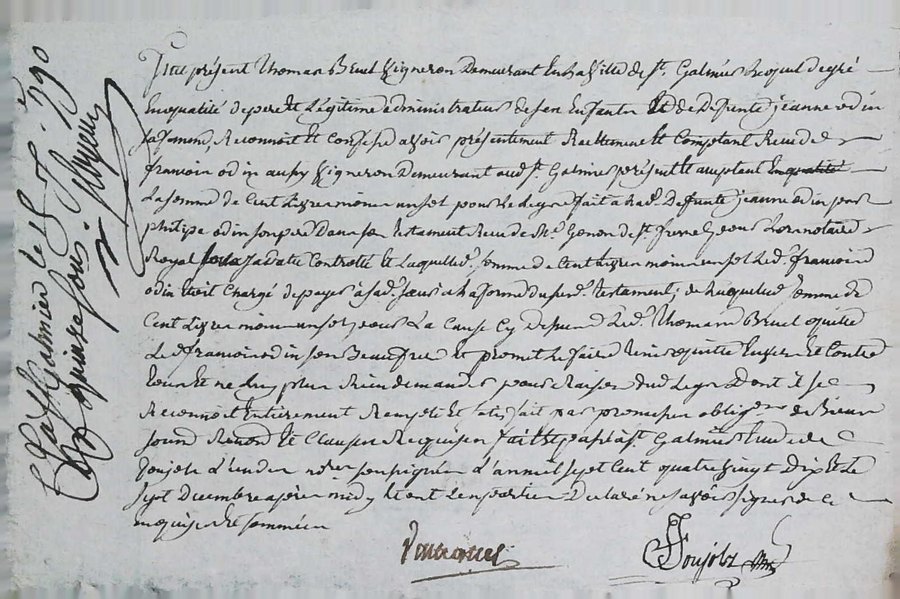 présent Thomas Bruel Vigneron Demeurant En La Ville de St. Galmier Lequel de gré
En qualité de pere Et Légitime administrateur de ses Enfants Et de Defunte jeanne odin
sa femme, Reconnoit Et Confesse avoir présentement Réellement Et Comptant Recu de
françois odin aussy Vigneron Demeurant aud. St. Galmier présent Et acceptant
La somme de Cent Livres moins un sol pour Le Legs fait à lad. Defunte jeanne odin par
philipe odin son pere Dans son Testament Recu de Me. Genon de St.
Royal sous sa datte Controllé Et Laquelle somme de Cent Livres moins un sol Led. françois
odin Etoit Chargé de payer à sad. soeur a La forme du sud. testament; de Laquelle somme de
Cent Livres moins un sol, pour La Cause Cy Dessus Led. Thomas Bruel quitte
Led. françois odin son Beau frere Et promet Le faire tenir quitte Envers Et Contre
tous Et ne Luy plus Rien demander pour Raison dud. Legs Dont il se
Reconnoit Entierement Et satisfait par promesses obligons de Biens
soums. Renons. Et Clauses Requises fait Et passé à St. Galmier Etude de
Poujolz L'un des nores. soussignés L'an mil sept Cent quatre vingt Dix Et Le
sept Décembre après midy Et ont Les parties Déclaré ne savoir signer de Ce
Enquises Et sommées
Poujolz
à St Galmier le 1790
Reçu quinze sous.